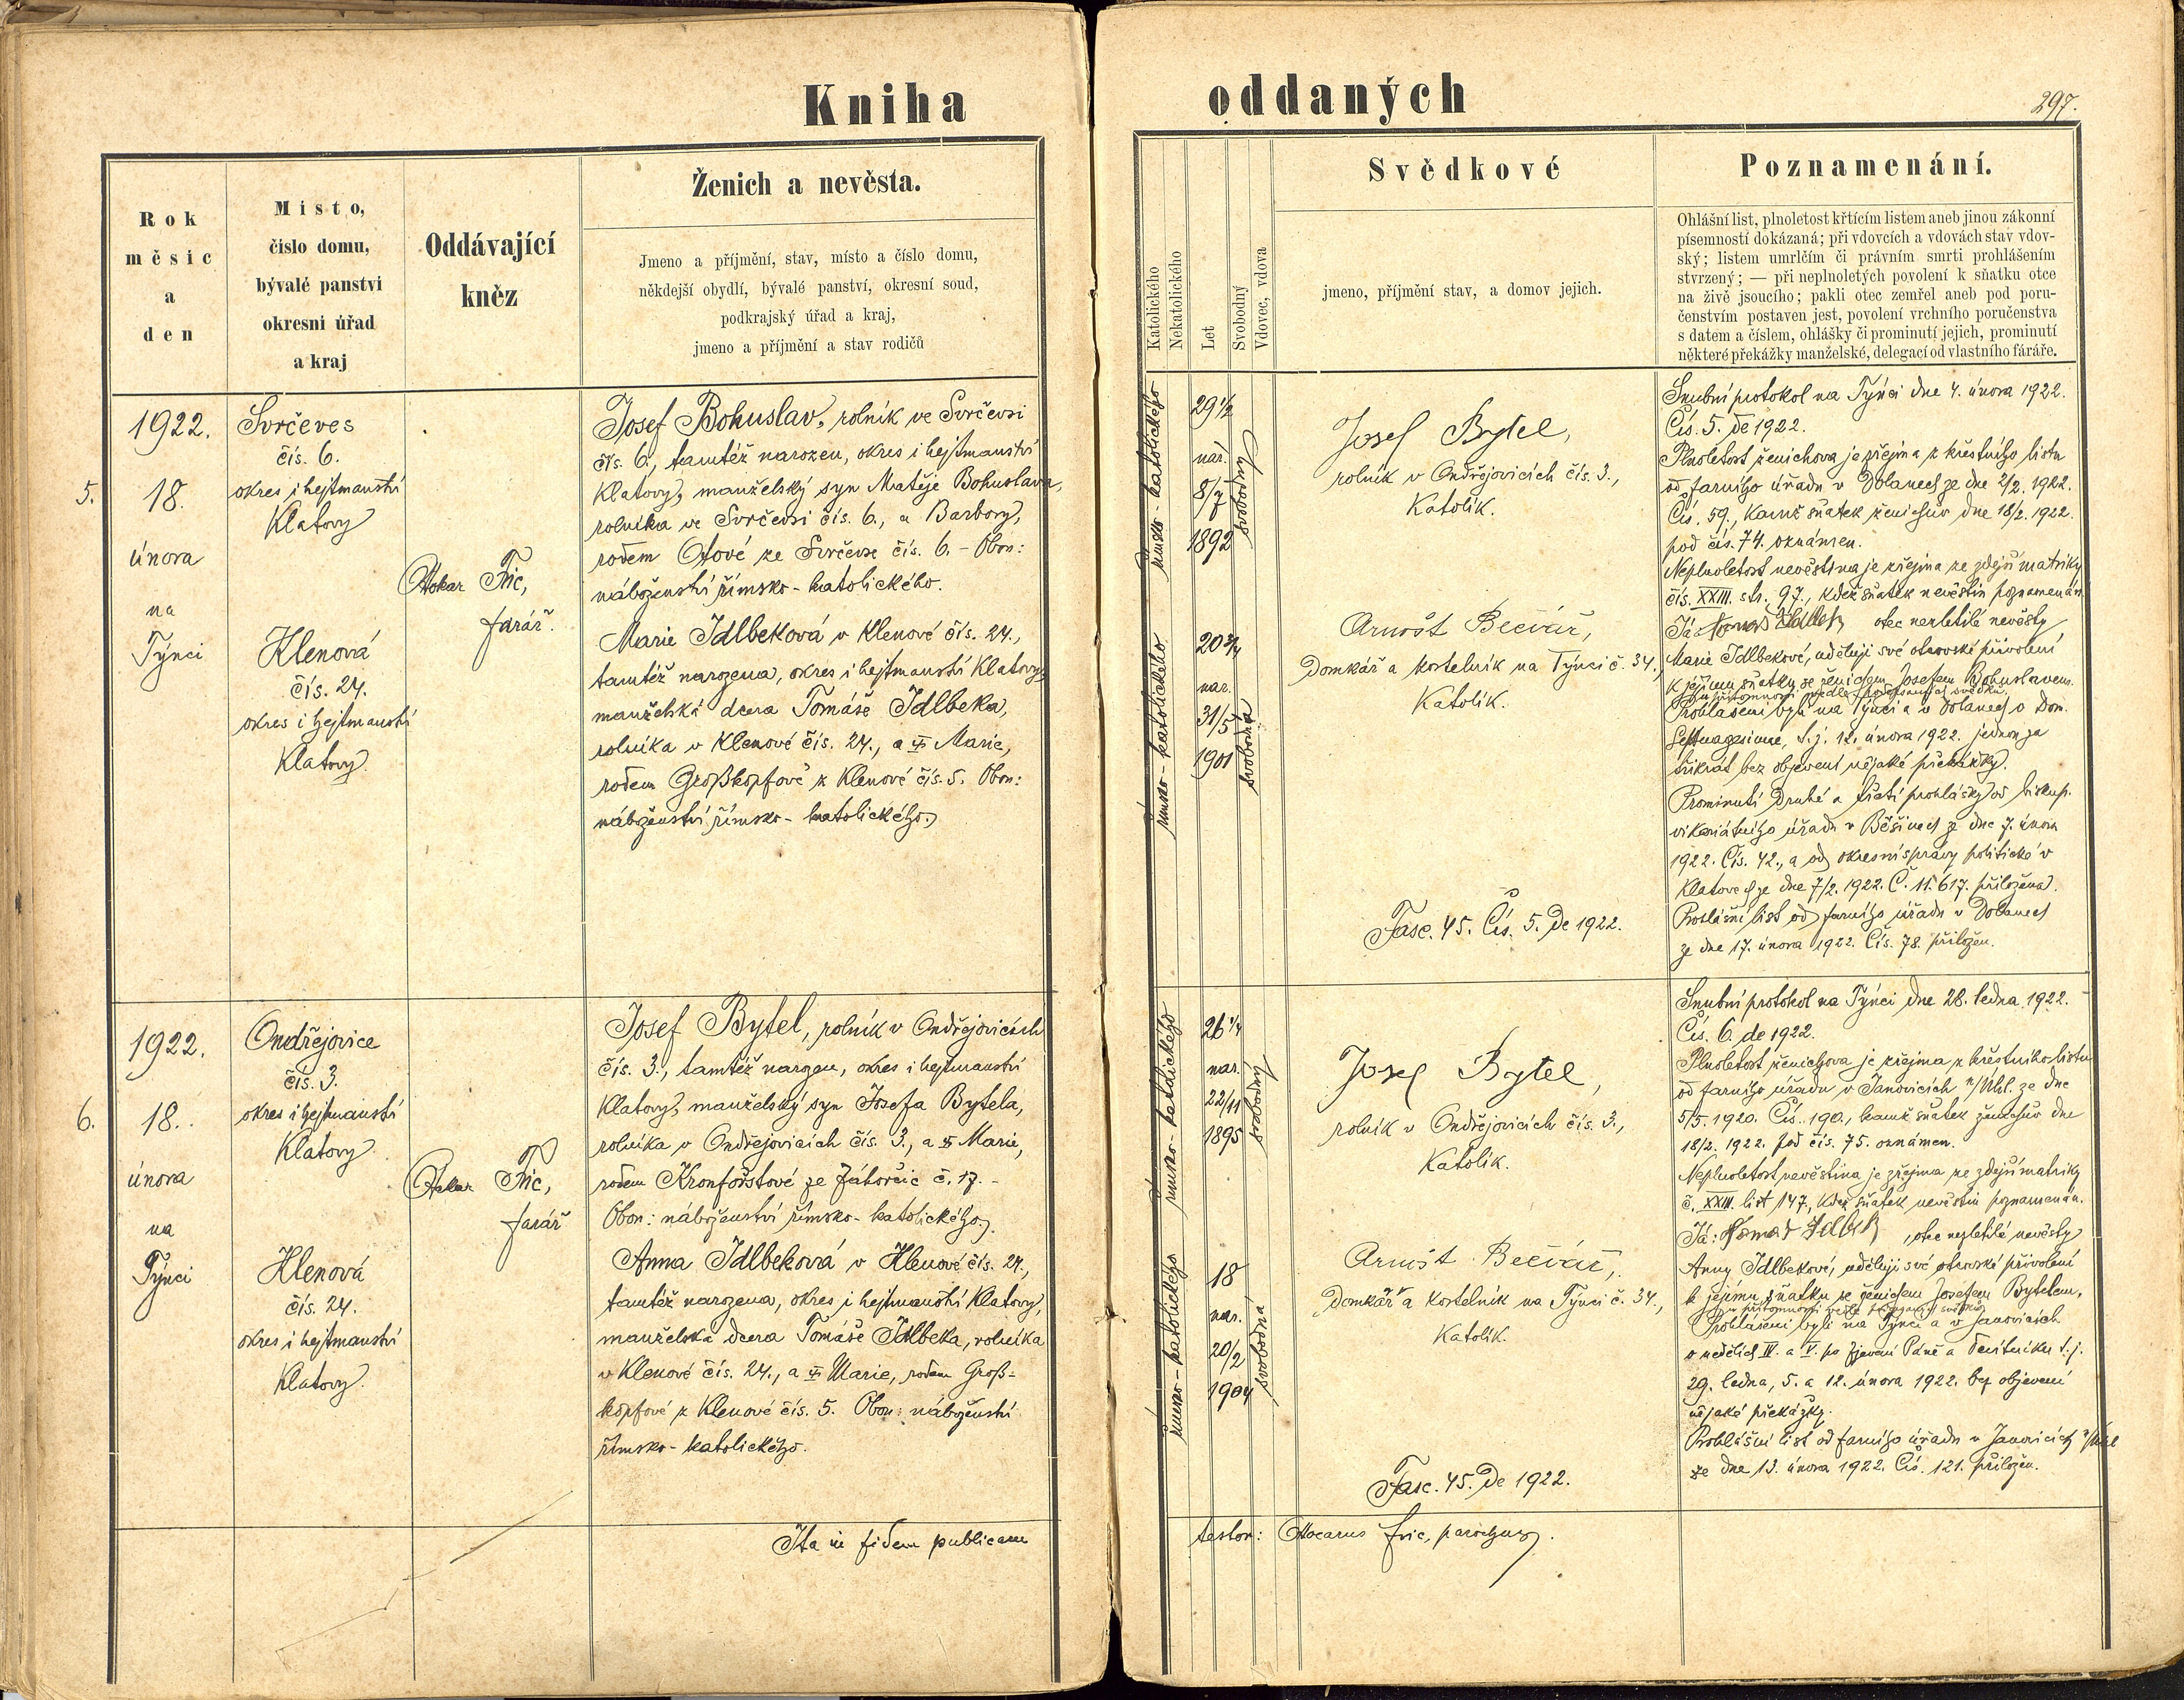 Kniha
oddaných
297.
Rok
měsíc
a
den
Místo,
číslo domu,
bývalé panství
okresní úřad
a kraj
Oddávající
kněz
Ženich a nevěsta.
Jmeno a příjmění, stav, místo a číslo domu,
někdejší obydlí, bývalé panství, okresní soud,
podkrajský úřad a kraj,
jmeno a příjmění a stav rodičů
Katolického
Nekatolického
Let
Svobodný
Vdovec, vdova
Svědkové
jmeno, příjmění stav, a domov jejich.
Poznamenání.
Ohlášní list, plnoletost křtícím listem aneb jinou zákonní
písemností dokázaná; při vdovcích a vdovách stav vdov-
ský; listem umrlčím či právním smrti prohlášením
stvrzený; — při neplnoletých povolení k sňatku otce
na živě jsoucího; pakli otec zemřel aneb pod poru-
čenstvím postaven jest, povolení vrchního poručenstva
s datem a číslem, ohlášky či prominutí jejich, prominutí
některé překážky manželské, delegací od vlastního fáráře.
5.
1922.
18.
února
na
Týnci
Svrčeves
čís. 6.
okres i hejtmanství
Klatovy
Klenová
čís. 24.
okres i hejtmanství
Klatovy.
Otokar Fric,
farář.
Josef Bohuslav, rolník ve Svrčevsi
čís. 6., tamtéž narozen, okres i hejtmanství
Klatovy, manželský syn Matěje Bohuslava,
rolníka ve Svrčevsi čís. 6., a Barbory,
rodem Otové ze Svrčevse čís. 6. - Obon:
náboženství římsko-katolického.
Marie Idlbeková v Klenové čís. 24.,
tamtéž narozena, okres i hejtmanství Klatovy,
manželská dcera Tomáše Idlbeka,
rolníka v Klenové čís. 24., a Marie,
rodem Großkopfové z Klenové čís. 5. Obon:
náboženství římsko-katolického.
římsko-katolického
29 1/2
nar.
8/7
1892
svobodný
římsko-katolického
20 3/4
nar.
31/5
1901
svobodná
Josef Bytel,
rolník v Ondřejovicích čís. 3.,
Katolík.
Arnošt Bečvář,
Domkář a kostelník na Týnci č. 34.,
Katolík.
Fasc. 45. Čís. 5. de 1922.
Snubní protokol na Týnci dne 4. února 1922.
Čís. 5. de 1922.
Plnoletost ženichova je zřejma z křestního listu
od farního úřadu v Dolanech ze dne 2/2. 1922.
Čís. 59., kamž sňatek ženichův dne 18/2. 1922.
pod čís. 74. oznámen.
Neplnoletost nevěstina je zřejma ze zdejší matriky
čís. XXIII. str. 97., kdež sňatek nevěstin poznamenán.
Já: Tomáš Idlbek otec nezletilé nevěsty
Marie Idlbekové, uděluji své otcovské přivolení
k jejímu sňatku se ženichem Josefem Bohuslavem
v přítomnosti vedle podepsaných svědků.
Prohlášeni byli na Týnci a v Dolanech o Dom.
Septuagesimae, t. j. 12. února 1922. jednou za
třikrát bez objevení nějaké překážky.
Prominutí druhé a třetí prohlášky od biskup.
vikariátního úřadu v Běšinech ze dne 7. února
1922. Čís. 42., a od okresní správy politické v
Klatovech ze dne 7/2. 1922. Č. 11.617. přiložena.
Prohlášní list od farního úřadu v Dolanech
ze dne 17. února 1922. Čís. 78. přiložen.
6.
1922.
18.
února
na
Týnci
Ondřejovice
čís. 3.
okres i hejtmanství
Klatovy
Klenová
čís. 24.
okres i hejtmanství
Klatovy.
Otokar Fric,
farář
Josef Bytel, rolník v Ondřejovicích
čís. 3., tamtéž narozen, okres i hejtmanství
Klatovy, manželský syn Josefa Bytela,
rolníka v Ondřejovicích čís. 3., a Marie,
rodem Kronforštové ze Záhorčic č. 17. -
Obon: náboženství římsko-katolického.
Anna Idlbeková v Klenové čís. 24.,
tamtéž narozena, okres i hejtmanství Klatovy,
manželská dcera Tomáše Idlbeka, rolníka
v Klenové čís. 24., a Marie, rodem Groß-
kopfové z Klenové čís. 5. Obon: náboženství
římsko-katolického.
římsko-katolického
26 1/4
nar.
22/11
1895
svobodný
římsko-katolického
18
nar.
20/2
1904
svobodná
Josef Bytel,
rolník v Ondřejovicích čís. 3.,
Katolík.
Arnošt Bečvář,
Domkář a kostelník na Týnci č. 34.,
Katolík.
Fasc. 45. de 1922.
Snubní protokol na Týnci dne 28. ledna 1922.
Čís. 6. de 1922.
Plnoletost ženichova je zřejma z křestního listu
od farního úřadu v Janovicích n/Úhl. ze dne
5/5. 1920. Čís. 190., kamž sňatek ženichův dne
18/2. 1922. pod čís. 75. oznámen.
Neplnoletost nevěstina je zřejma ze zdejší matriky
č. XXIII. list 147., kdež sňatek nevěstin poznamenán.
Já: Tomáš Idlbek, otec nezletilé nevěsty
Anny Idlbekové, uděluji své otcovské přivolení
k jejímu sňatku se ženichem Josefem Bytelem,
v přítomnosti vedle podepsaných svědků.
Prohlášeni byli na Týnci a v Janovicích
o nedělích IV. a V. po Zjevení Páně a Devítníku t. j.
29. ledna, 5. a 12. února 1922. bez objevení
nějaké překážky.
Prohlášní list od farního úřadu v Janovicích n/Úhl
ze dne 13. února 1922. Čís. 121. přiložen.
Ita in fidem publicam
testor: Otocarus Fric, parochus.